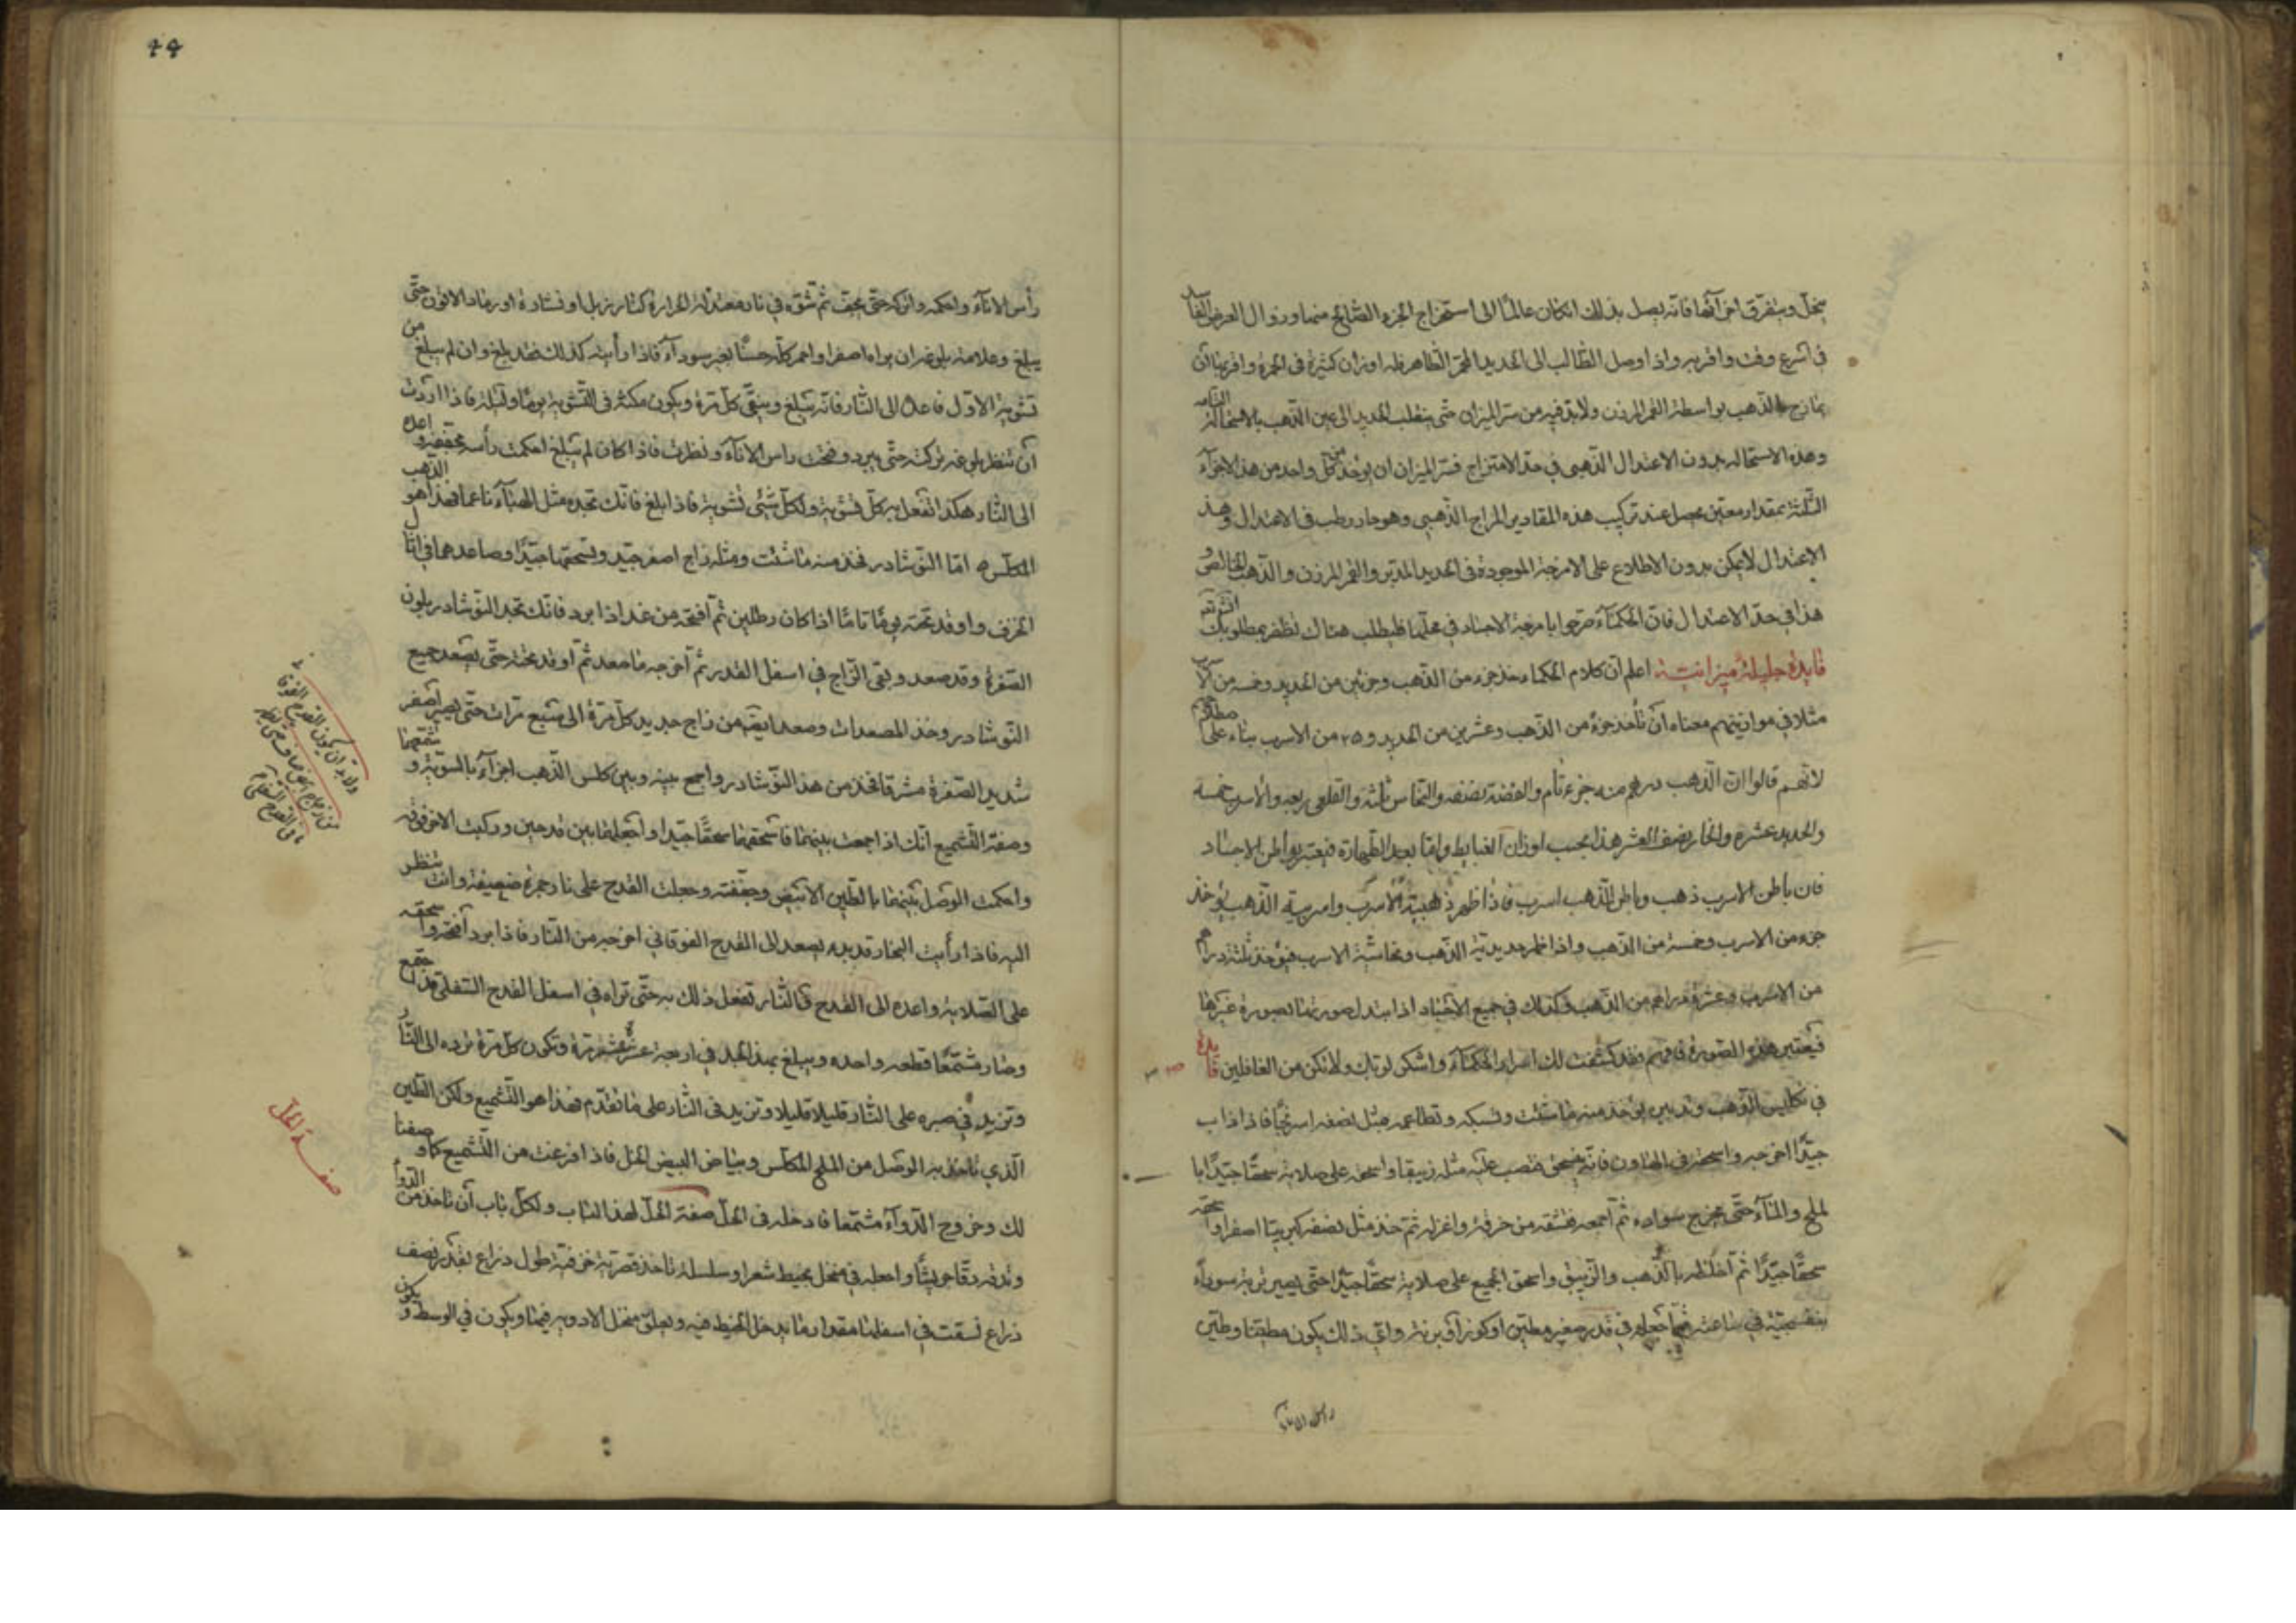 ينحل ويتفرق اجزآئها فانه يصل بذلك ان كان عالما الى استخراج الجزء الصالح منها وزوال العرض الفاسد
فى اسرع وقت واقربه واذا وصل الطالب الى الحديد المحمر الطاهر فله اوزان كثيرة فى الحمرة واقربها ان
يمازج الذهب بواسطة القمر المرزن ولابد فيه من سر الميزان حتى ينقلب الحديد الى عين الذهب بالاستحالة التامه
وهذه الاستحالة بدون الاعتدال الذهبى فى حد الامتزاج فسر الميزان ان يوخذ من كل واحد من هذا الاجزآء
الثلثة بمقدار معين يحصل عند تركيب هذه المقادير المزاج الذهبى وهو حار رطب فى الاعتدال وهذ
الاعتدال لايمكن بدون الاطلاع على الامزجة الموجودة فى الحديد المدبر والقمر المرزن والذهب الخالص و
هذا فى حد الاعتدال فان الحكمآء صرحوا بامزجة الاجساد فى محلها فليطلب هناك تظفر بمطلوبك
فايدة جليلة ميزانية اعلم ان كلام الحكماء خذ جزء من الذهب وجزئين من الحديد وخمسه من الاسرب
مثلا فى موازينهم معناه ان تأخذ جزءً من الذهب وعشرين من الحديد و٢٥ من الاسرب بناء على
لانهم قالوا ان الذهب درهم منه جزء تام والفضة نصفه والنحاس ثلثه والقلعى ربعه والاسرب خمسه
والحديد عشره هذا بحسب اوزان واما بعد الطهارة فيعتبر بواطن الاجساد
فان باطن الاسرب ذهب وباطن الذهب اسرب فاذا ظهر ذهبية الاسرب واسربية الذهب يوخذ
جزء من الاسرب وخمسة من الذهب واذا ظهر حديدية الذهب ونحاسية الاسرب فيؤخذ ثلثة دراهم
من الاسرب وعشرة دراهم من الذهب وكذلك فى جميع الاجساد اذا ابتدل صورتها بصورة غيرها
فيعتبر هذه الصورة فافهم فقد كشفت لك اسرار الحكمآء واشكر لربك ولا تكن من الغافلين فايدة
فى تكليس الذهب وتدبيره يوخذ منه ما شئت وتسبكه وتطاعمه مثل نصفه اسربجا فاذا ذاب
جيدا اخرجه واسحقه فى الهاون فانه ينسحق فصب عليه مثله زيبقا واسحق على صلاية سحقا جيدا با
لملح والمآء حتى يخرج سواده ثم اجمعه فنشفه من خرقة واعزله ثم خذ مثل نصفه كبريتا اصفر واسحقه
سحقا جيدا ثم اخلطه بالذهب والزيبق واسحق الجميع على صلاية سحقا جيدا حتى يصير تربة سودآء
بنفسجية فى ساعته ثم اجعله فى قدر صغير مطين او كوز او برنية واى ذلك يكون مطبقا وطين
راس الانآء
رأس الانآء واحكمه واتركه حتى يجف ثم تشوه فى نار معتدلة الحرارة كنار زبل او نشارة او رماد الاتون حتى
يبلغ وعلامة بلوغه ان يراه اصفر او احمر كله حسنا بغير سودآء فاذا رأيته كذلك فقد بلغ وان لم يبلغ من
تشوية الاول فاعد الى النار فانه تبلغ وينقى كل مرة ويكون مكثه فى التشوية يوما وليلة فاذا اردت
ان تنظر بلوغه تركته حتى يبرد وفتحت راس الانآء ونظرت فاذا كان لم يبلغ احكمت رأسه بجففه واعده
الى النار هكذا تفعل به كل تشوية ولكل شئ تشوية فاذا بلغ فانك تجده مثل الهبآء ناعما فهذا هو الذهب
المكلس ه اما النوشادر فخذ منه ما شئت ومثله زاج اصفر جيد وتسحقهما جيدا وصاعدهما فى اثال
الخزف واوقد تحته يوما تاما اذا كان رطلين ثم افتحه من غد اذا برد فانك تجد النوشادر بلون
الصفرة وقد صعد وبقى الزاج فى اسفل القدر ثم اخرجه ما صعد ثم اوقد تحته حتى يصعد جميع
النوشادر وخذ المصعدات وصعد ايضا من زاج جديد كل مرة الى سبع مرات حتى يصير اصفر
شديد الصفرة مشرقا فخذ من هذ النوشادر واجمع بينه وبين كلس الذهب اجزآء بالسوية و تشمعهما
وصفة التشميع انك اذا جمعت بينهما فاسحقهما سحقا جيدا واجعلهما بين قدحين وركبت الاخر فوقه
واحكمت الوصل بينهما بالطين الابيض وجففته وجعلت القدح على نار جمرة ضعيفة وانت تنظر
اليه فاذا رأيت البخار قد بدء يصعد الى القدح الفوقانى اخرجه من النار فاذا برد افتحه واسحقه
على الصلاية واعده الى القدح فالنار تفعل ذلك به حتى تراه فى اسفل القدح السفلى قد اجتمع
وصار مشمعا قطعه واحده ويبلغ بهذ الحد فى اربعة عشر مرة وتكون كل مرة ترده الى النار
وتزيد فى صبره على النار قليلا قليلا وتزيد فى النار على ما تقدم فهذا هو التشميع ولكن الطين
الذي تاخذ به الوصل من الملح المكلس وبياض البيض الحل فاذا فرغت من التشميع كما وصفنا
لك وخروج الدوآء مشمعا فادخله فى الحل صفة الحل لهذا الباب ولكل باب ان تاخذ من الدوآء
وتدقه دقا جريشا واجعله فى منخل بخيط شعر او سلسلة تاخذ قصرية خزفية طول ذراع بقدر نصف
ذراع تسقت فى اسفلها مقدار ما يدخل الخيط فيه ويعلق منخل الادويه فيها ويكون فى الوسط و يكون
صفة الحل